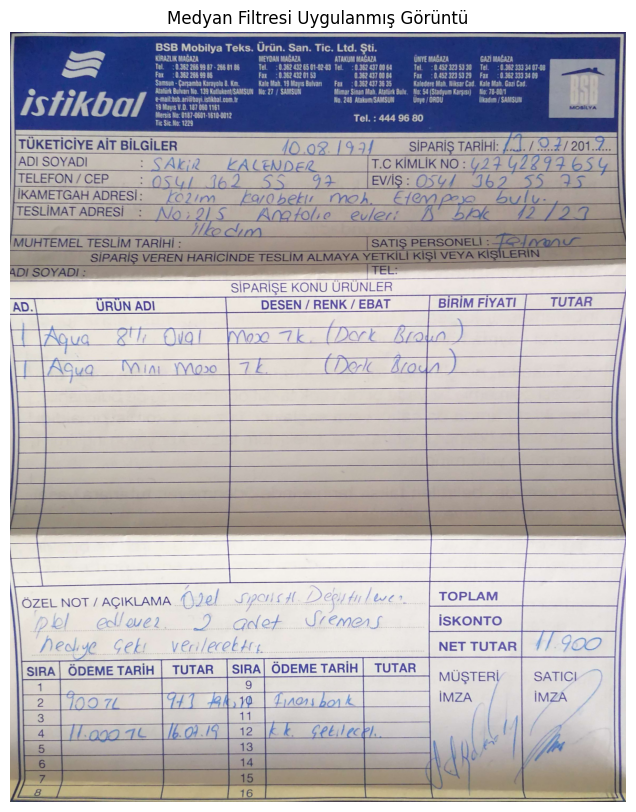 Medyan Filtresi Uygulanmış Görüntü
istikbal
BSB Mobilya Teks. Ürün. San. Tic. Ltd. Şti.
KİRAZLIK MAĞAZA
Tel. : 0.362 266 99 87 - 266 81 86
Fax : 0.362 266 99 86
Samsun - Çarşamba Karayolu 8. Km.
Atatürk Bulvarı No. 139 Kutlukent/SAMSUN
19 Mayıs V.D. 187 060 1161
Mersis No: 0187-0601-1610-0012
Tic Sic. No: 1229
MEYDAN MAĞAZA
Tel. : 0.362 432 65 01-02-03
Fax : 0.362 432 01 53
Kale Mah. 19 Mayıs Bulvarı
No: 27 / SAMSUN
ATAKUM MAĞAZA
Tel. : 0.362 437 80 64
0.362 437 80 84
Fax : 0.362 437 36 35
Mimar Sinan Mah. Atatürk Bulv.
No. 248 Atakum/SAMSUN
ÜNYE MAĞAZA
Tel. : 0.452 323 53 30
Fax : 0.452 323 53 29
Kaledere Mah. Niksar Cad.
No: 54 (Stadyum Karşısı)
Ünye / ORDU
GAZİ MAĞAZA
Tel. : 0.362 333 34 07-08
Fax : 0.362 333 34 09
Kale Mah. Gazi Cad.
No: 78-80/1
İlkadım / SAMSUN
BSB
MOBİLYA
Tel. : 444 96 80
TÜKETİCİYE AİT BİLGİLER 10.08.1971 SİPARİŞ TARİHİ: 13 / 07 / 2019
ADI SOYADI : ŞAKİR KALENDER T.C KİMLİK NO : 42742897654
TELEFON / CEP : 0541 362 55 97 EV/İŞ : 0541 362 55 75
İKAMETGAH ADRESİ : Kazım Karabekir mah. bulv.
TESLİMAT ADRESİ : No: 215 Anatolia evleri B blok 12/23
İlkadım
MUHTEMEL TESLİM TARİHİ : SATIŞ PERSONELİ :
SİPARİŞ VEREN HARİCİNDE TESLİM ALMAYA YETKİLİ KİŞİ VEYA KİŞİLERİN
ADI SOYADI : TEL:
SİPARİŞE KONU ÜRÜNLER
AD. ÜRÜN ADI DESEN / RENK / EBAT BİRİM FİYATI TUTAR
1 Aqua 8'li Oval Masa Tk. (Dark Brown)
1 Aqua Mini Masa Tk. (Dark Brown)
ÖZEL NOT / AÇIKLAMA Özel
iptal edilemez. 2 adet Siemens
hediye çeki verilecektir.
TOPLAM
İSKONTO
NET TUTAR 11.900
SIRA ÖDEME TARİH TUTAR SIRA ÖDEME TARİH TUTAR
1 9
2 900 TL 10 Finansbank
3 11
4 11.000 TL 16.07.19 12 k.k. çekilecek.
5 13
6 14
7 15
8 16
MÜŞTERİ
İMZA
SATICI
İMZA